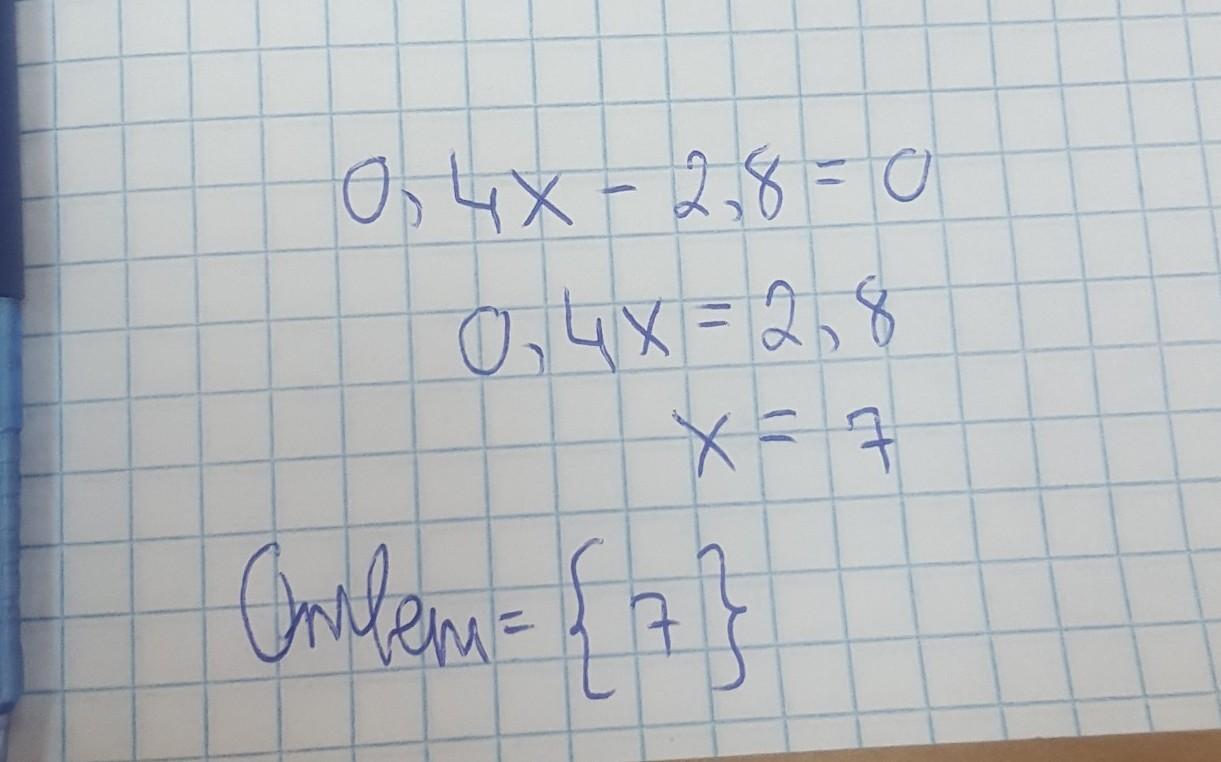 0,4x - 2,8 = 0
0,4x = 2,8
x = 7
Ответ = {7}